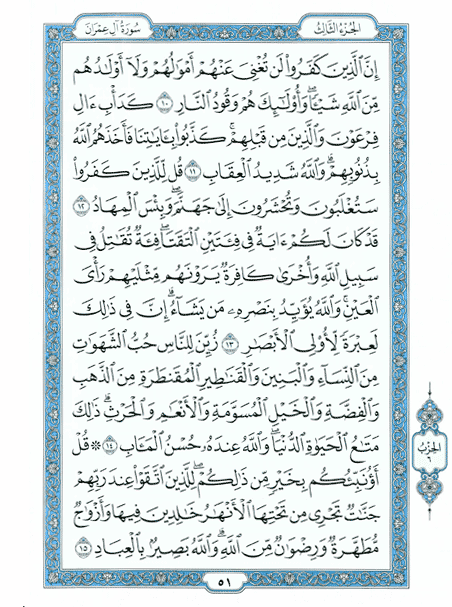 الجزء الثالث
سورة آل عمران
إِنَّ ٱلَّذِينَ كَفَرُواْ لَن تُغْنِيَ عَنْهُمْ أَمْوَٰلُهُمْ وَلَآ أَوْلَٰدُهُم
مِّنَ ٱللَّهِ شَيْـًٔا ۖ وَأُوْلَٰٓئِكَ هُمْ وَقُودُ ٱلنَّارِ ١٠ كَدَأْبِ ءَالِ
فِرْعَوْنَ وَٱلَّذِينَ مِن قَبْلِهِمْ ۚ كَذَّبُواْ بِـَٔايَٰتِنَا فَأَخَذَهُمُ ٱللَّهُ
بِذُنُوبِهِمْ ۗ وَٱللَّهُ شَدِيدُ ٱلْعِقَابِ ١١ قُل لِّلَّذِينَ كَفَرُواْ
سَتُغْلَبُونَ وَتُحْشَرُونَ إِلَىٰ جَهَنَّمَ ۚ وَبِئْسَ ٱلْمِهَادُ ١٢
قَدْ كَانَ لَكُمْ ءَايَةٌ فِي فِئَتَيْنِ ٱلْتَقَتَا ۖ فِئَةٌ تُقَٰتِلُ فِي
سَبِيلِ ٱللَّهِ وَأُخْرَىٰ كَافِرَةٌ يَرَوْنَهُم مِّثْلَيْهِمْ رَأْيَ
ٱلْعَيْنِ ۚ وَٱللَّهُ يُؤَيِّدُ بِنَصْرِهِۦ مَن يَشَآءُ ۗ إِنَّ فِي ذَٰلِكَ
لَعِبْرَةً لِّأُوْلِي ٱلْأَبْصَٰرِ ١٣ زُيِّنَ لِلنَّاسِ حُبُّ ٱلشَّهَوَٰتِ
مِنَ ٱلنِّسَآءِ وَٱلْبَنِينَ وَٱلْقَنَٰطِيرِ ٱلْمُقَنطَرَةِ مِنَ ٱلذَّهَبِ
وَٱلْفِضَّةِ وَٱلْخَيْلِ ٱلْمُسَوَّمَةِ وَٱلْأَنْعَٰمِ وَٱلْحَرْثِ ۗ ذَٰلِكَ
مَتَٰعُ ٱلْحَيَوٰةِ ٱلدُّنْيَا ۖ وَٱللَّهُ عِندَهُۥ حُسْنُ ٱلْمَـَٔابِ ١٤ ۞ قُلْ
أَؤُنَبِّئُكُم بِخَيْرٍ مِّن ذَٰلِكُمْ ۚ لِلَّذِينَ ٱتَّقَوْاْ عِندَ رَبِّهِمْ
جَنَّٰتٌ تَجْرِي مِن تَحْتِهَا ٱلْأَنْهَٰرُ خَٰلِدِينَ فِيهَا وَأَزْوَٰجٌ
مُّطَهَّرَةٌ وَرِضْوَٰنٌ مِّنَ ٱللَّهِ ۗ وَٱللَّهُ بَصِيرٌۢ بِٱلْعِبَادِ ١٥
الحزب
٦
٥١